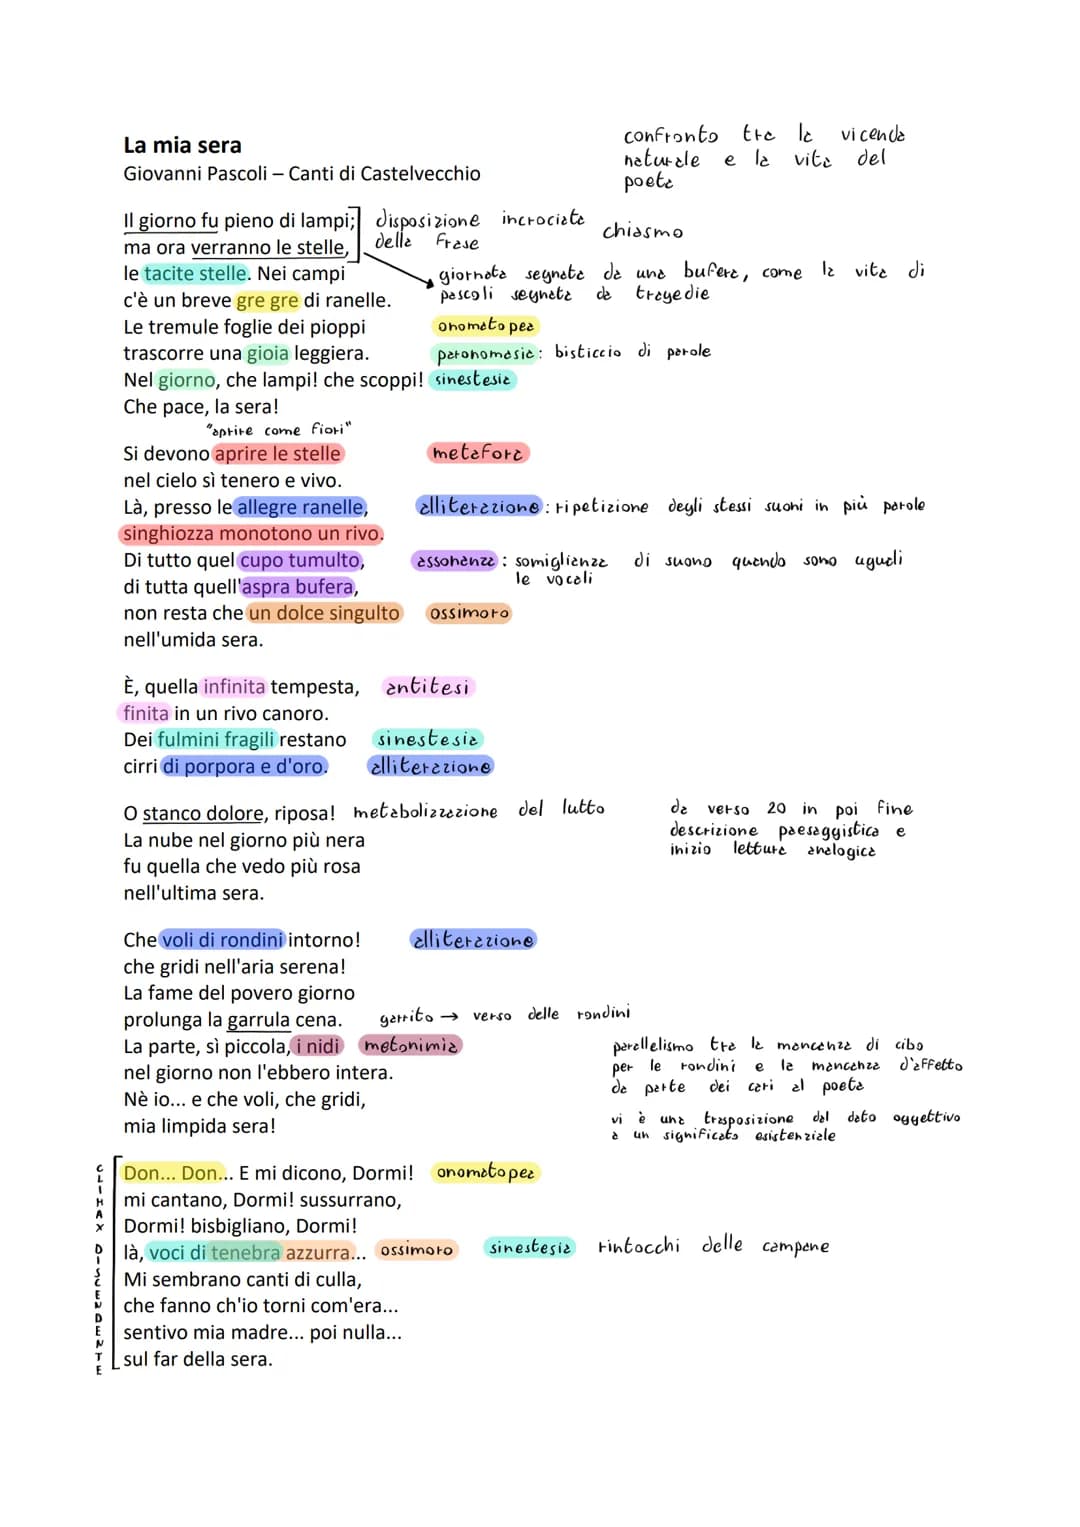 La mia sera
Giovanni Pascoli – Canti di Castelvecchio
confronto tra la vicenda
naturale e la vita del
poeta
Il giorno fu pieno di lampi; disposizione incrociata chiasmo
ma ora verranno le stelle, della frase
le tacite stelle. Nei campi giornata segnata da una bufera, come la vita di
c'è un breve gre gre di ranelle. pascoli segnata da tragedie
Le tremule foglie dei pioppi onomatopea
trascorre una gioia leggiera. paronomasia: bisticcio di parole
Nel giorno, che lampi! che scoppi! sinestesia
Che pace, la sera!
"aprire come fiori"
Si devono aprire le stelle metafora
nel cielo sì tenero e vivo.
Là, presso le allegre ranelle, alliterazione: ripetizione degli stessi suoni in più parole
singhiozza monotono un rivo.
Di tutto quel cupo tumulto, assonanza: somiglianza di suono quando sono uguali
di tutta quell'aspra bufera, le vocali
non resta che un dolce singulto ossimoro
nell'umida sera.
È, quella infinita tempesta, antitesi
finita in un rivo canoro.
Dei fulmini fragili restano sinestesia
cirri di porpora e d'oro. alliterazione
O stanco dolore, riposa! metabolizzazione del lutto da verso 20 in poi fine
La nube nel giorno più nera descrizione paesaggistica e
fu quella che vedo più rosa inizio lettura analogica
nell'ultima sera.
Che voli di rondini intorno! alliterazione
che gridi nell'aria serena!
La fame del povero giorno
prolunga la garrula cena. garrito → verso delle rondini
La parte, sì piccola, i nidi metonimia parallelismo tra la mancanza di cibo
nel giorno non l'ebbero intera. per le rondini e la mancanza d'affetto
Nè io... e che voli, che gridi, da parte dei cari al poeta
mia limpida sera! vi è una trasposizione dal dato oggettivo
a un significato esistenziale
CLIMAX DISCENDENTE
Don... Don... E mi dicono, Dormi! onomatopea
mi cantano, Dormi! sussurrano,
Dormi! bisbigliano, Dormi!
là, voci di tenebra azzurra... ossimoro sinestesia rintocchi delle campane
Mi sembrano canti di culla,
che fanno ch'io torni com'era...
sentivo mia madre... poi nulla...
sul far della sera.